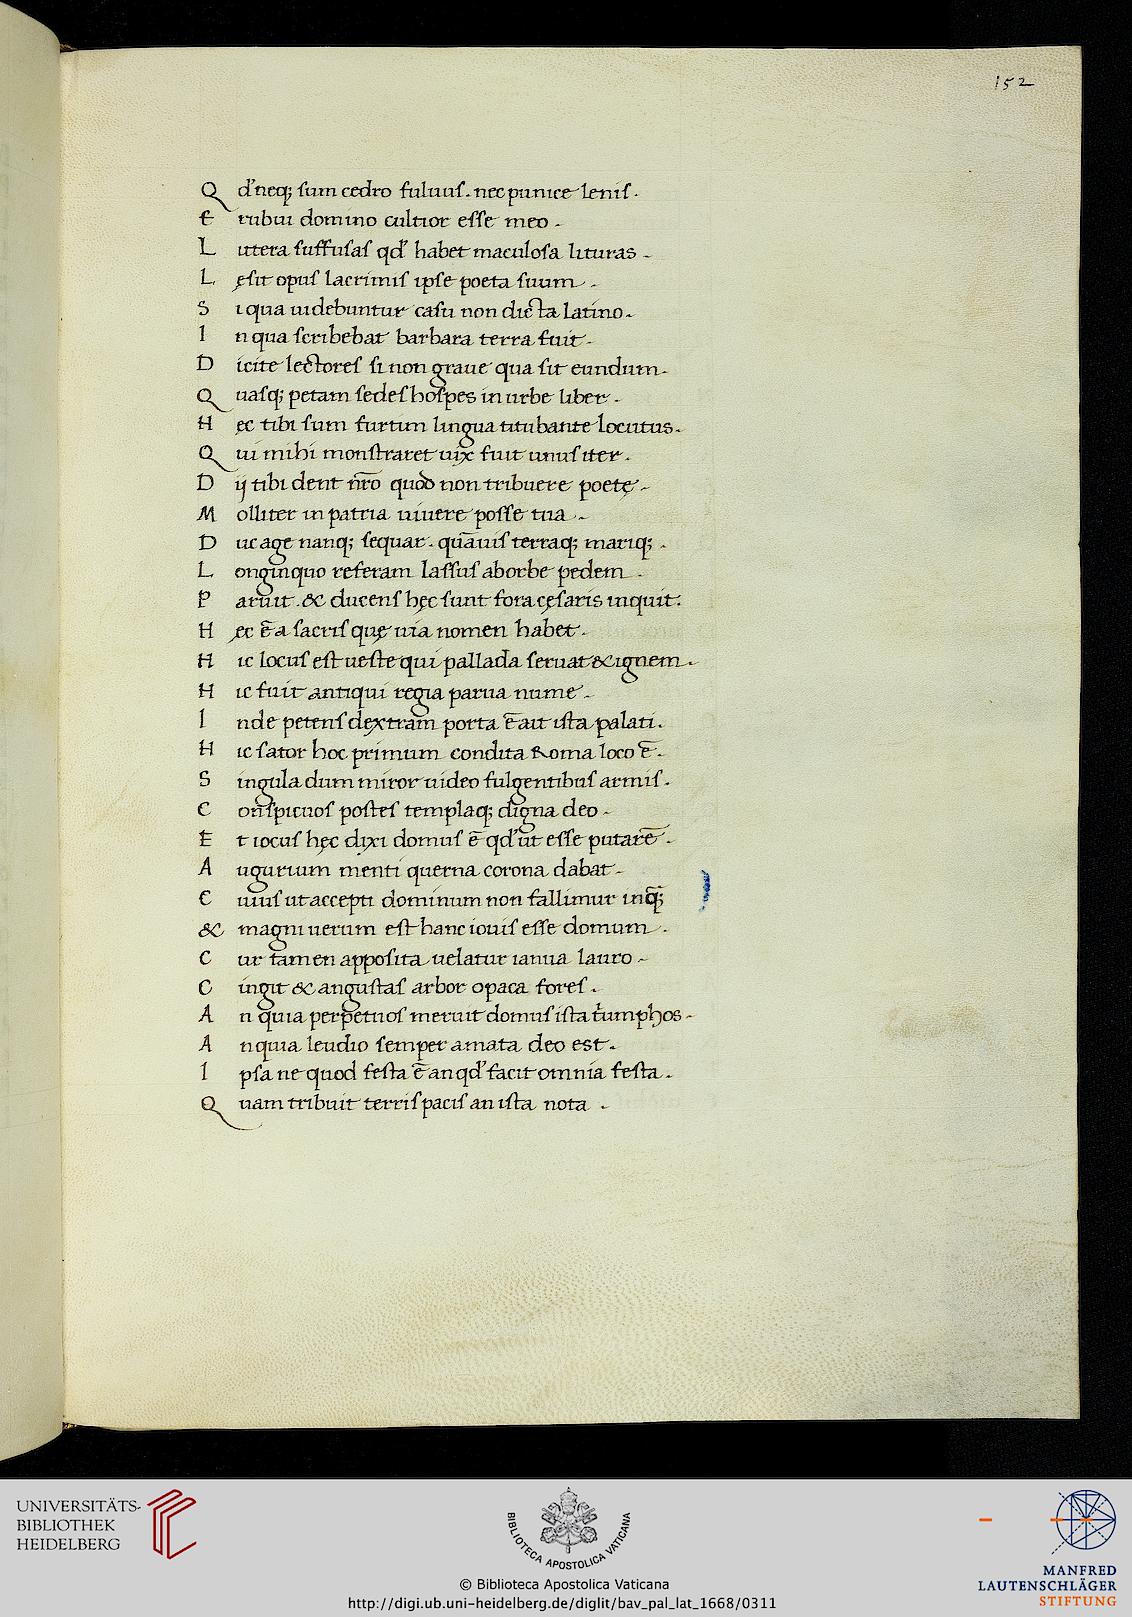 152
Q d' neq; sum cedro fuluus. nec punice lenis.
E rubui domino cultior esse meo.
L ittera suffusas qd' habet maculosa lituras.
L ęsit opus lacrimis ipse poeta suum.
S i qua uidebuntur casu non dicta latino.
I n qua scribebat barbara terra fuit.
D icite lectores si non graue qua sit eundum.
Q uasq; petam sedes hospes in urbe liber.
H ęc tibi sum furtim lingua titubante locutus.
Q ui mihi monstraret uix fuit unus iter.
D ij tibi dent nr̄o quod non tribuere poetę.
M olliter in patria uiuere posse tua.
D uc age nanq; sequar. quāuis terraq; mariq;.
L onginquo referam lassus aborbe pedem.
P aruit. & ducens hęc sunt fora cęsaris inquit.
H ęc ē a sacris quę uia nomen habet.
H ic locus est ueste qui pallada seruat & ignem.
H ic fuit antiqui regia parua nume.
I nde petens dextram porta ē ait ista palati.
H ic sator hoc primum condita Roma loco ē.
S ingula dum miror uideo fulgentibus armis.
C onspicuos postes templaq; digna deo.
E t iocus hęc dixi domus ē qd' ut esse putarē.
A ugurium menti querna corona dabat.
C uius ut accepti dominum non fallimur inq̄;
& magni uerum est hanc iouis esse domum.
C ur tamen apposita uelatur ianua lauro.
C ingit & angustas arbor opaca fores.
A n quia perpetuos meruit domus ista t'umphos.
A n quia leudio semper amata deo est.
I psa ne quod festa ē an qd' facit omnia festa.
Q uam tribuit terris pacis an ista nota.
UNIVERSITÄTS-
BIBLIOTHEK
HEIDELBERG
BIBLIOTECA APOSTOLICA VATICANA
MANFRED
LAUTENSCHLÄGER
STIFTUNG
© Biblioteca Apostolica Vaticana
http://digi.ub.uni-heidelberg.de/diglit/bav_pal_lat_1668/0311